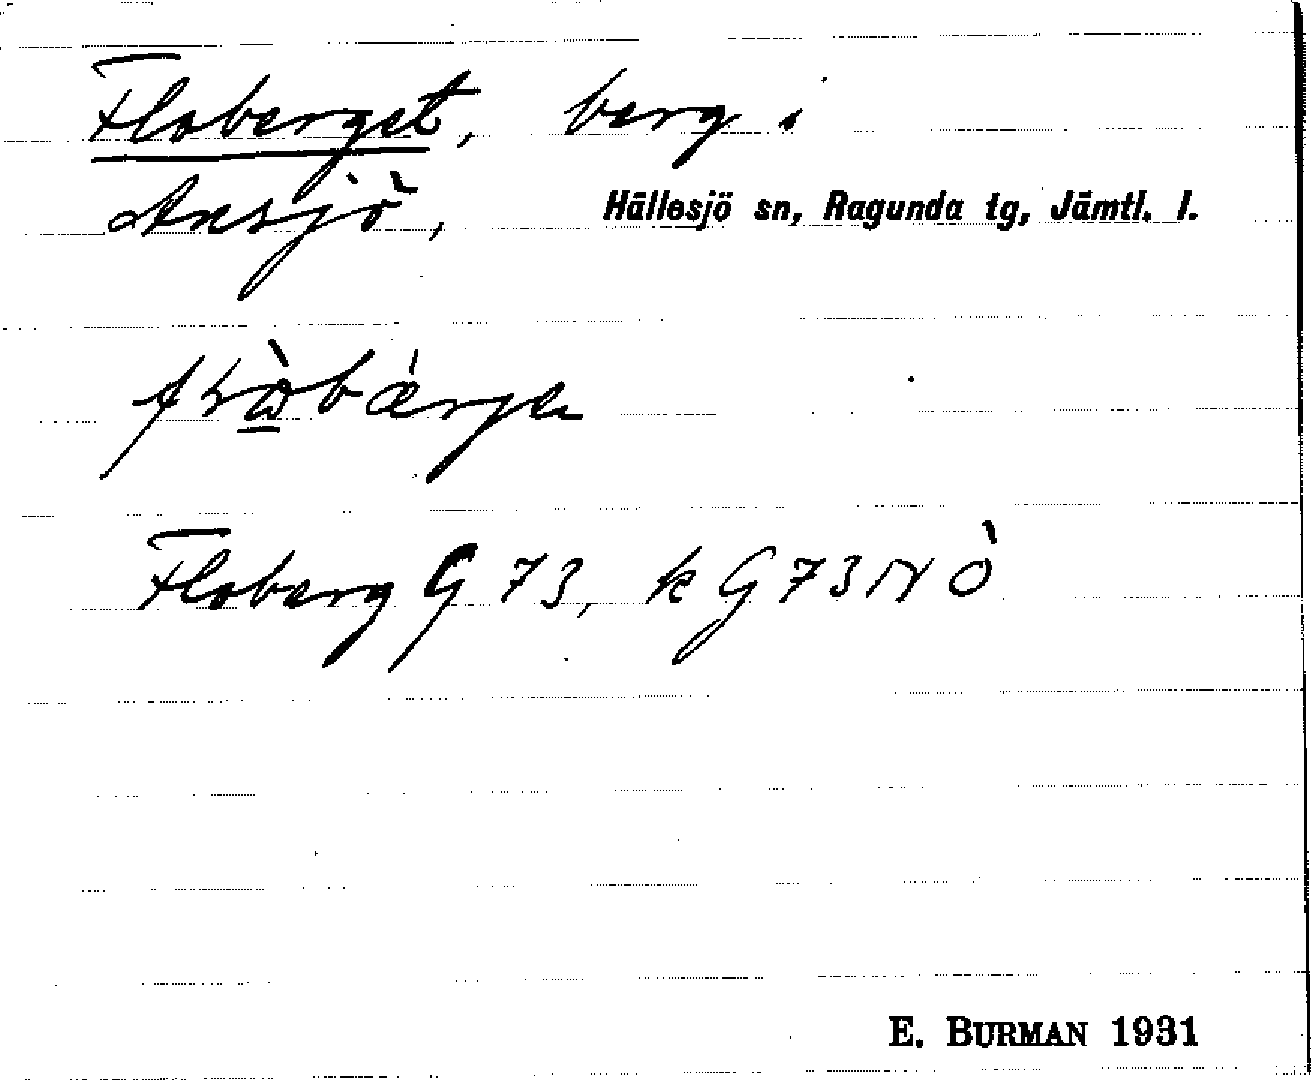 Floberget, berg i
Ansjö, Hällesjö sn, Ragunda tg, Jämtl. l.
Floberg G 73, k G 73 NÖ
E. BURMAN 1931